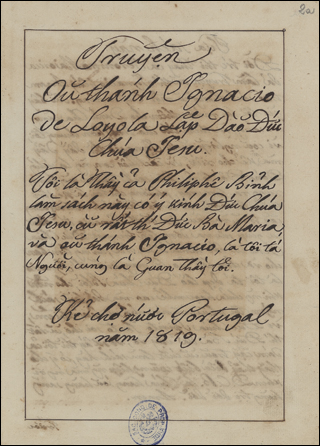 2a
Truyện
Oũ thánh Ignacio
De Loyola Lập Dàõ Đức
Chúa Jesu.
Tôi là Thầy cả Philiphê Bỉnh
làm sách nầy có ý kính Đức Chúa
Jesu, cũ rất th. Đức Bà Maria,
và oũ thánh Ignacio, là tôi tá
Người, cũng là Quan thầy tôi.
Kẻ chợ nước Portugal
năm 1819.